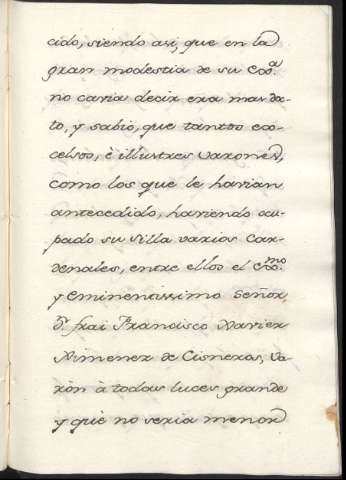 cido, siendo asi, que en la
gran modestia de su Exa.
no cavia decir era mas do-
to, y sabio, que tantos ex-
celsos, è illustres varones,
como los que le havian
antecedido, haviendo ocu-
pado su silla varios Car-
denales, entre ellos el Exmo.
y Eminentissimo Señor,
D. frai Francisco Xavier
Ximenez de Cisneros, va-
ròn à todas luces grande
y què no seria menor